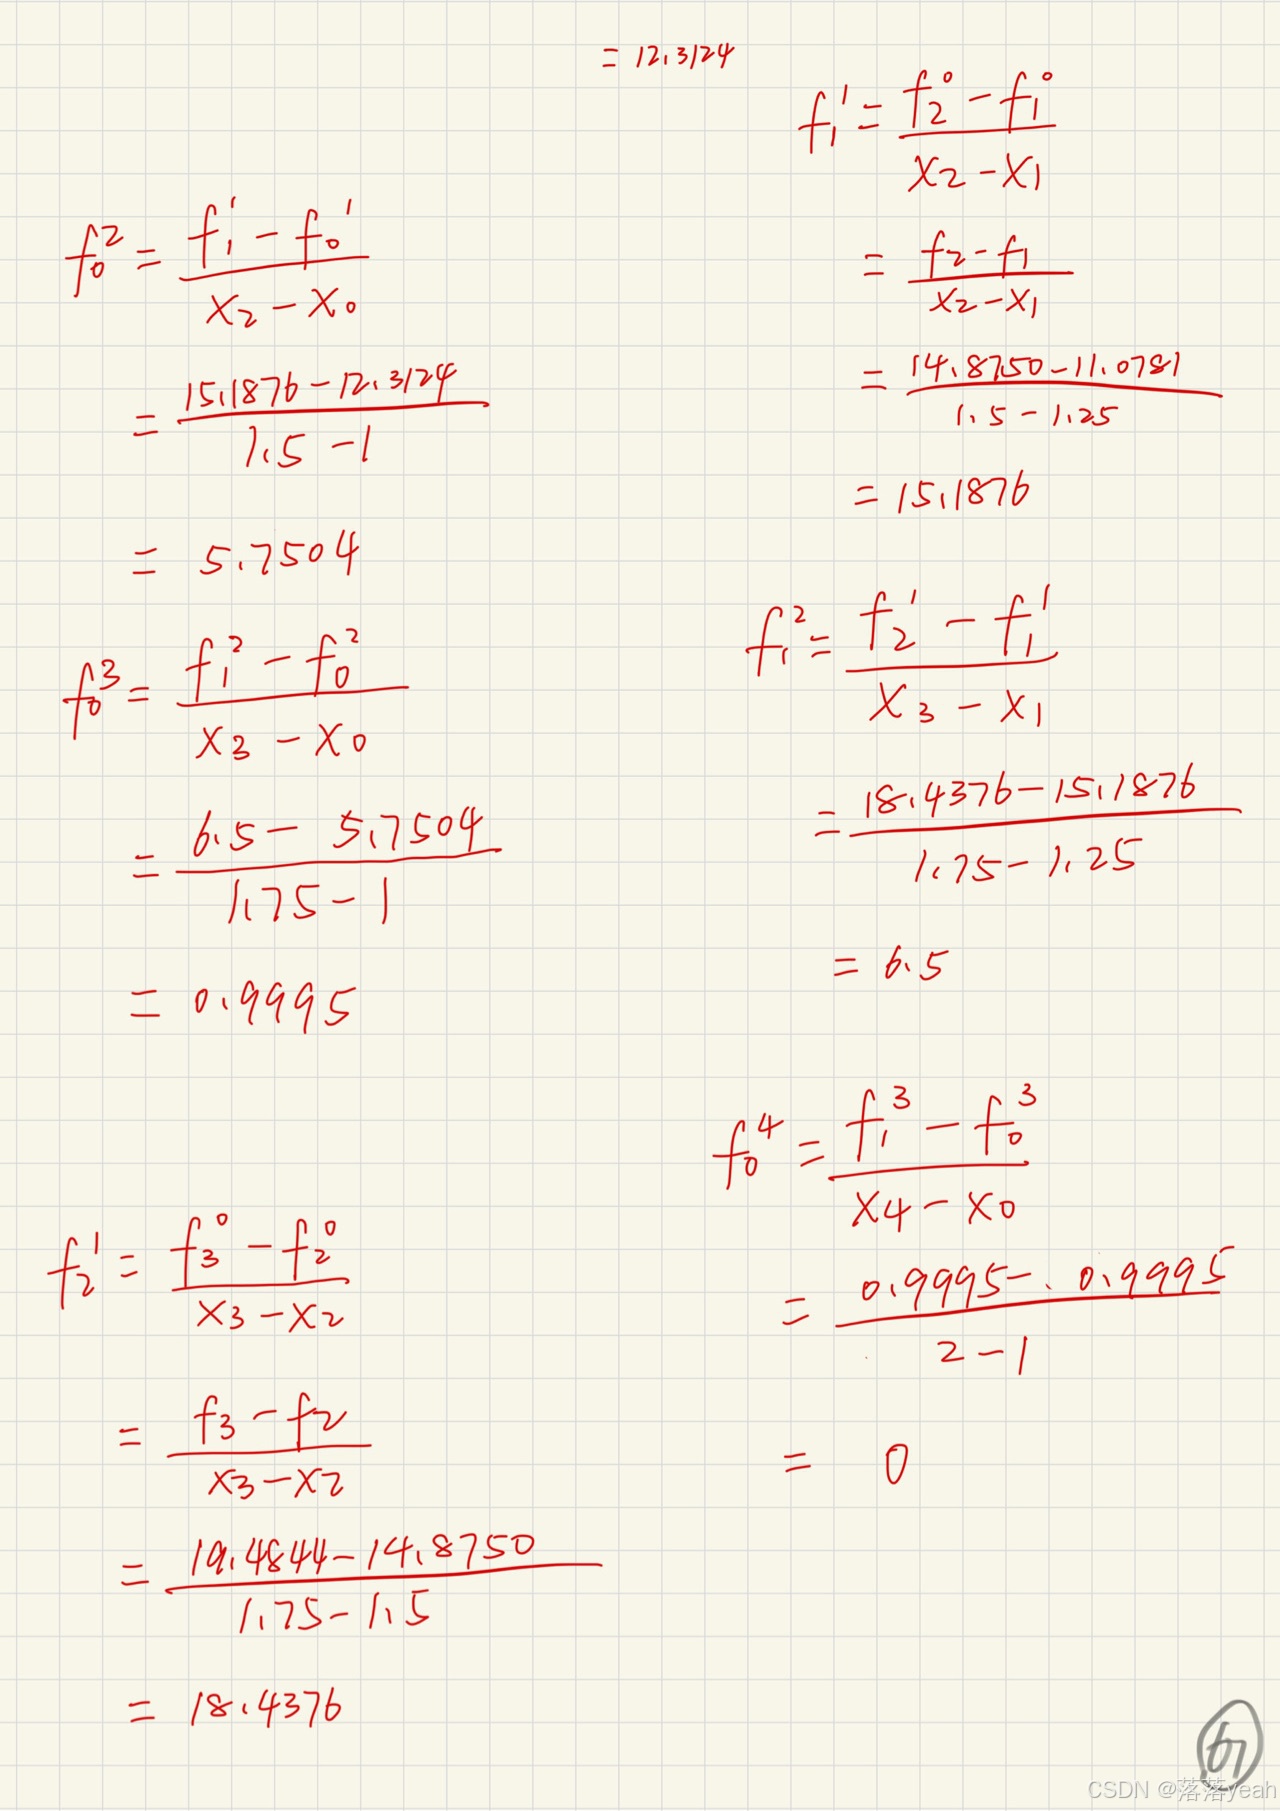 = 12.3124
f₁¹ = (f₂⁰ - f₁⁰) / (x₂ - x₁)
= (f₂ - f₁) / (x₂ - x₁)
= (14.8750 - 11.0781) / (1.5 - 1.25)
= 15.1876
f₀² = (f₁¹ - f₀¹) / (x₂ - x₀)
= (15.1876 - 12.3124) / (1.5 - 1)
= 5.7504
f₁² = (f₂¹ - f₁¹) / (x₃ - x₁)
= (18.4376 - 15.1876) / (1.75 - 1.25)
= 6.5
f₀³ = (f₁² - f₀²) / (x₃ - x₀)
= (6.5 - 5.7504) / (1.75 - 1)
= 0.9995
f₀⁴ = (f₁³ - f₀³) / (x₄ - x₀)
= (0.9995 - 0.9995) / (2 - 1)
= 0
f₂¹ = (f₃⁰ - f₂⁰) / (x₃ - x₂)
= (f₃ - f₂) / (x₃ - x₂)
= (19.4844 - 14.8750) / (1.75 - 1.5)
= 18.4376
CSDN @落落yeah